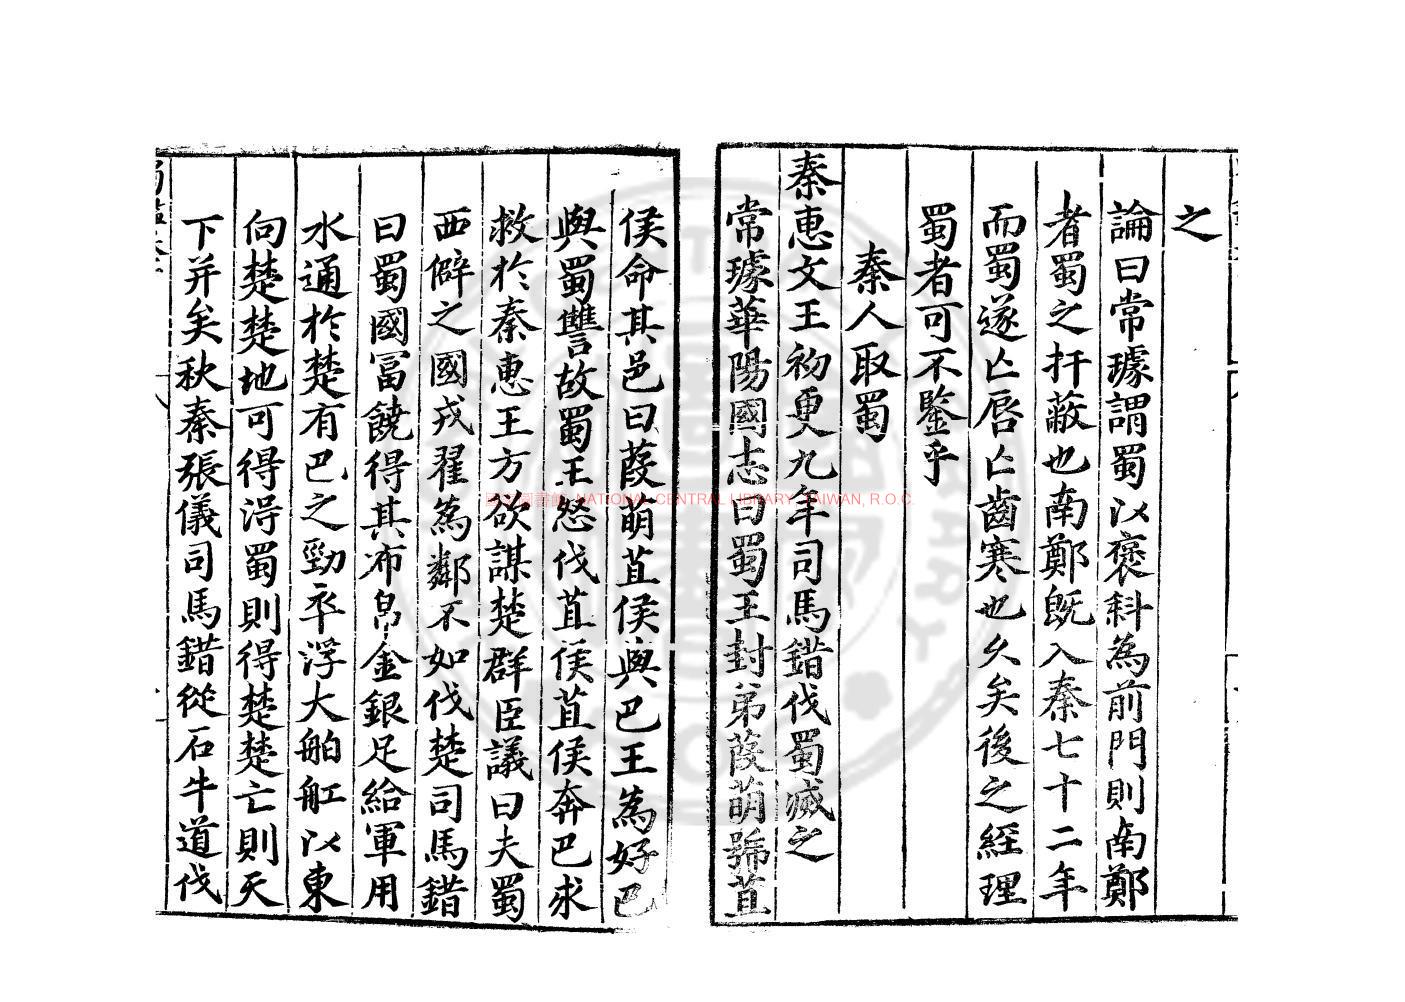 之
論曰常璩謂蜀以褒斜為前門則南鄭
者蜀之扞蔽也南鄭旣入秦七十二年
而蜀遂亡唇亡齒寒也久矣後之經理
蜀者可不鑒乎
秦人取蜀
秦惠文王初更九年司馬錯伐蜀滅之
常璩華陽國志曰蜀王封弟葭萌號苴
侯命其邑曰葭萌苴侯與巴王為好巴
與蜀讐故蜀王怒伐苴侯苴侯奔巴求
救於秦惠王方欲謀楚群臣議曰夫蜀
西僻之國戎翟為鄰不如伐楚司馬錯
曰蜀國冨饒得其布帛金銀足給軍用
水通於楚有巴之勁卒浮大舶舡以東
向楚楚地可得淂蜀則得楚楚亡則天
下并矣秋秦張儀司馬錯從石牛道伐
NATIONAL CENTRAL LIBRARY, TAIWAN, R.O.C.